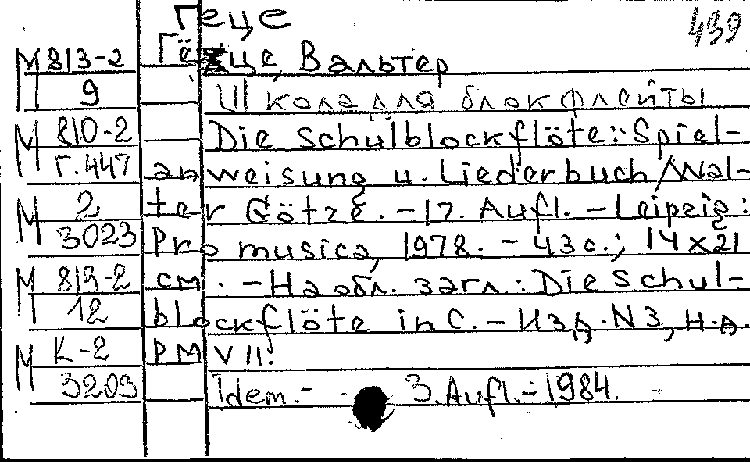 Геце
439
М 813-2 Гёце, Вальтер
9 Школа для блокфлейты
М 810-2 Die Schulblockflöte: Spiel-
М г.447 anweisung u. Liederbuch / Wal-
М 2 ter Götze. - 17. Aufl. - Leipzig:
3023 Pro musica, 1978. - 43 с.; 14x21
М 813-2 см. - На обл. загл.: Die Schul-
12 blockflöte in C. - Изд. N3, н.д.
М К-2 PM VII.
3203 Idem. - 3. Aufl. - 1984.